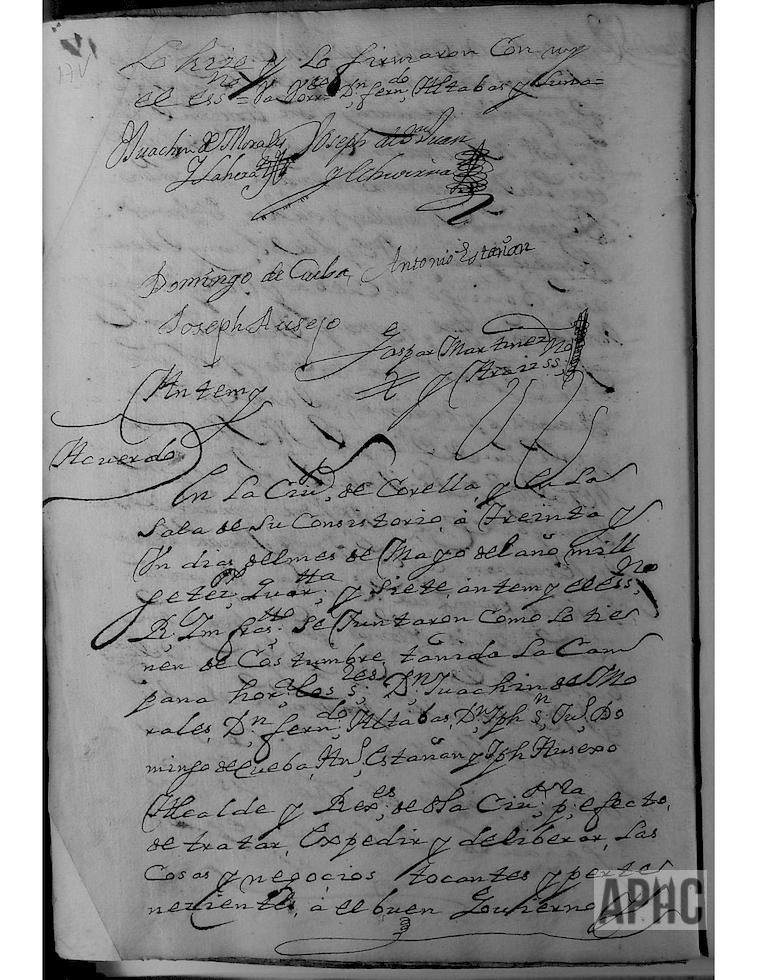 Lo hizo y lo firmaron Con my
el essno = Dn ferndo Altabas y Luna =
Juachin de Morales Joseph de Sn Juan
y Lahera y Echavirria
Domingo de Cueba, Antonio Estañan
Joseph Ausejo
Gaspar Martinez
y Araiz ssno
Antemy
Acuerdo
En La Ciud, de Corella, y en La
Sala de Su Consistorio, à Treinta y
Un dias del mes de Mayo del año mill
Setezs quartta y Siete, antemy el essno
Rl, Imfrastto Se Juntaron Como lo tie
nen de Costumbre, tañida La Cam
pana hor, los ss,res Dn Juachin de Mo
rales, Dn fern,do Altabas, Dn Jph Sn, Jun, Do
mingo de Cueba, Anto, Estañan y Jph Ausexo
Alcalde y Rexes de dha Ciud, pa, efecto,
de tratar, Expedir y deliberar, Las
Cosas y negocios tocantes y perte
nezientes, à el buen Gouierno
APHC